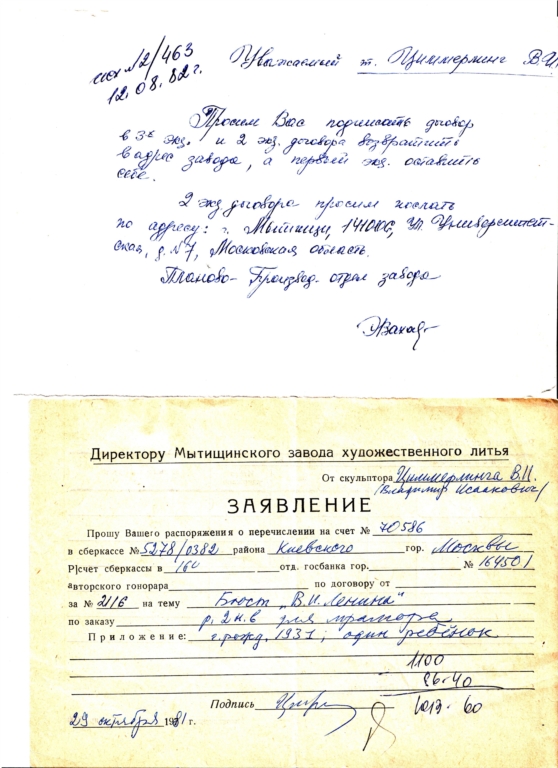 исх №2/463
12.08.82 г.
Уважаемый т. Циммерлинг В.И.
Просим Вас подписать договор
в 3х экз. и 2 экз. договора возвратить
в адрес завода, а первый экз. оставить
себе.
2 экз договора просим послать
по адресу: г. Мытищи, 141006, ул. Университет-
ская, д. №7, Московская область.
Планово-Производ. отдел завода
Директору Мытищинского завода художественного литья
От скульптора Циммерлинга В.И.
/Владимир Исаакович/
ЗАЯВЛЕНИЕ
Прошу Вашего распоряжения о перечислении на счет № 70586
в сберкассе № 5278/0382 района Киевского гор. Москвы
Р|счет сберкассы в отд. госбанка гор. № 164501
авторского гонорара по договору от
за № 2116 на тему Бюст „В.И. Ленина"
по заказу р. 2 н.в для мрамора
Приложение: г. рожд. 1931; один ребёнок
1100
86-40
1013-60
Подпись
29 октября 1981 г.